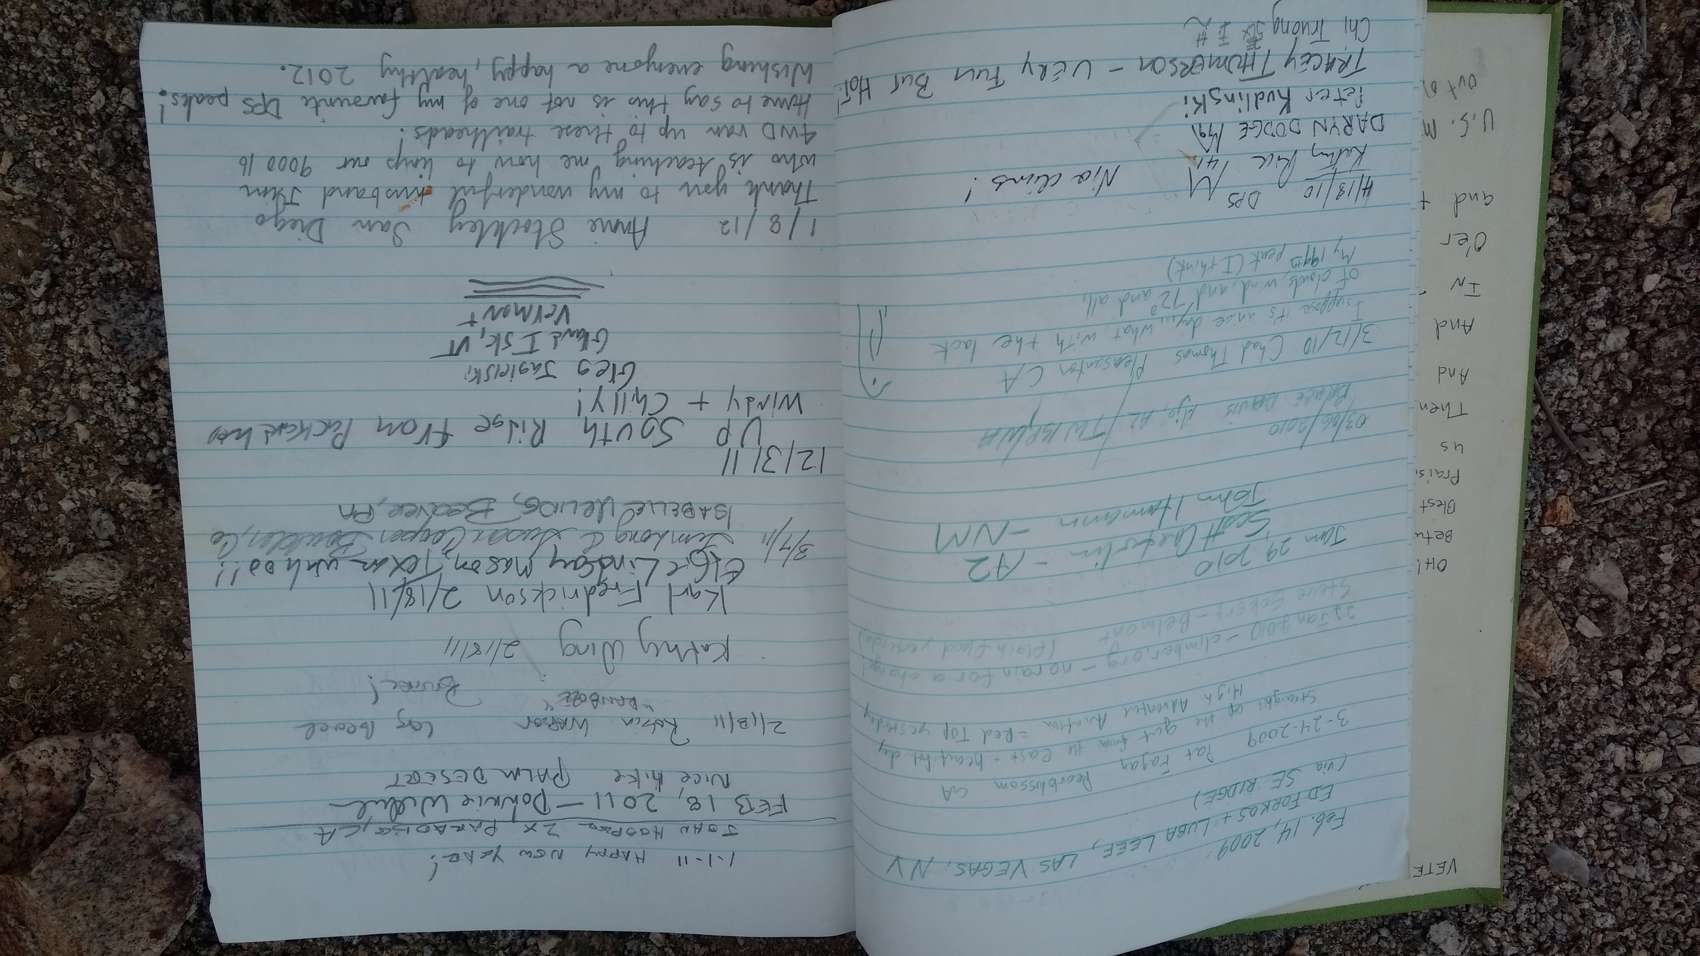 VETE
OH!
Betu
Blest
Prais
us
Then
And
And
In
Oer
and t
U.S. M
out o
Feb. 14, 2009
ED FORKOS + LUBA LEEF, LAS VEGAS, NV
(via SE RIDGE)
3-24-2009 Pat Fagan Pearblossom CA
straight up the gut from the east - beautiful day
High Adventure Aviation = Red Top yesterday
23 Jan 2010 - climber.org - no rain for a change!
Steve Eckert - Belmont (flash flood yesterday)
Jan 29, 2010
Scott - AZ
John Hamann - NM
03/06/2010
Ajo, AZ
3/12/10 Chad Thomas Pleasanton CA
I suppose its a nice day, what with the lack
of clouds, wind, and 72° and all.
My 199th peak (I think)
4/18/10 DPS
Kathy Rice Nice climb!
DARYN DODGE
Peter Kudlinski
TRACEY THOMERSON - VERY FUN BUT HOT!
Chi Truong
1-1-11 HAPPY NEW YEAR!
JOHN HOOPER 2X PARADISE, CA
FEB 18, 2011 - Donnie
Nice hike PALM DESERT
2/18/11 Robin
Kathy Wing 2/18/11
Karl Fredrickson 2/18/11
Lindsay Mason Texan wahoo!!
3/7/11 Susan Cooper Boulder, Co
ISABELLE
12/31/11
Up South Ridge from
Windy + Chilly!
Greg Jagielski
Grand Isle, VT
Vermont
1/8/12 Annie Stockley San Diego
Thank you to my wonderful husband
who is teaching me how to limp our 9000 lb
4WD van up to these trailheads!
Have to say this is not one of my favourite DPS peaks!
Wishing everyone a happy, healthy 2012.